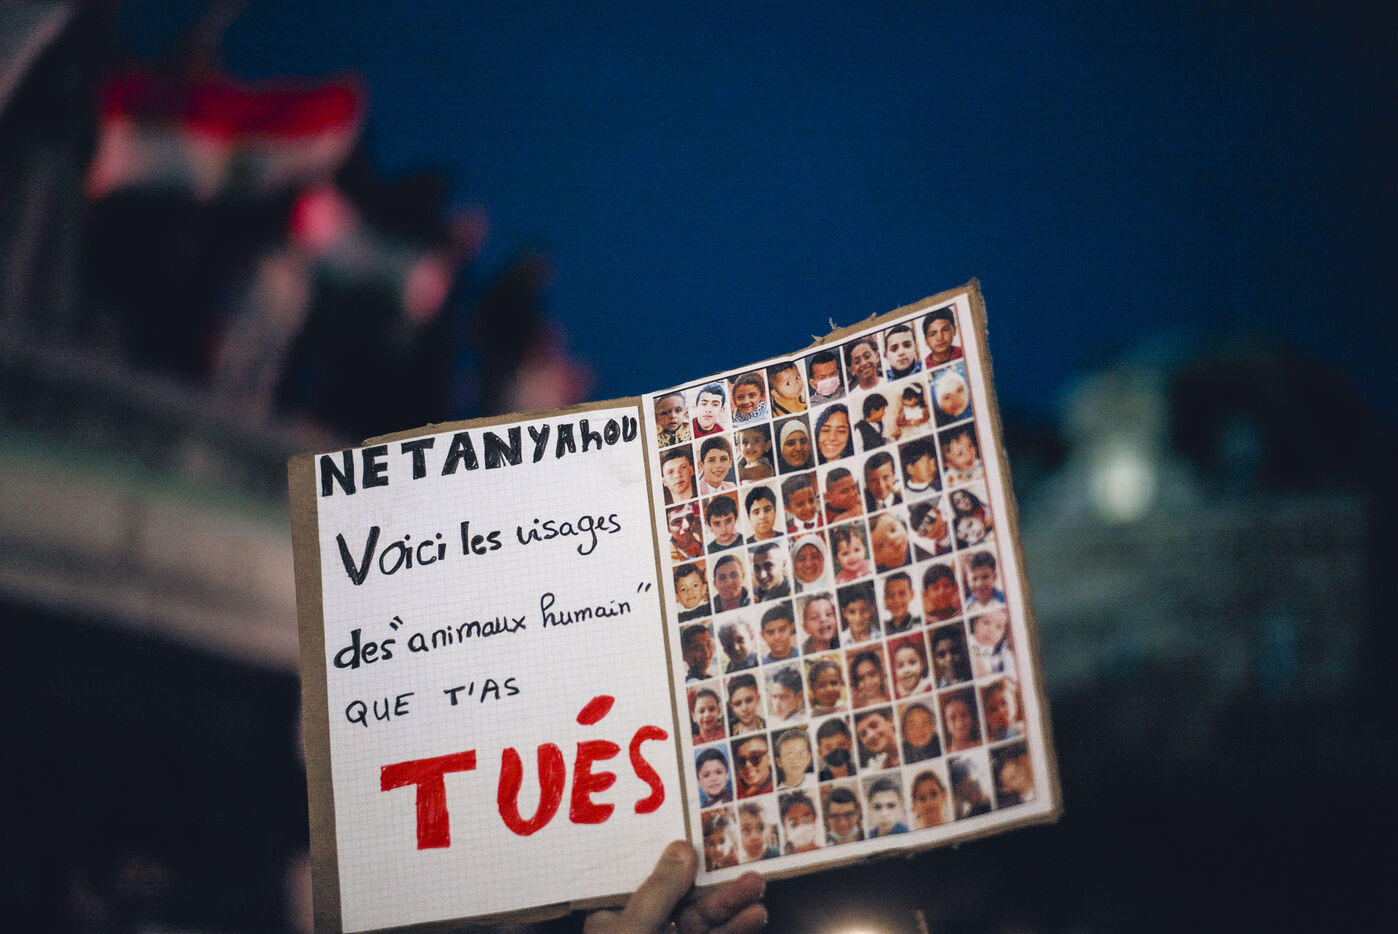 NETANYAhOU
Voici les visages
des "animaux humain"
QUE T'AS
TUÉS